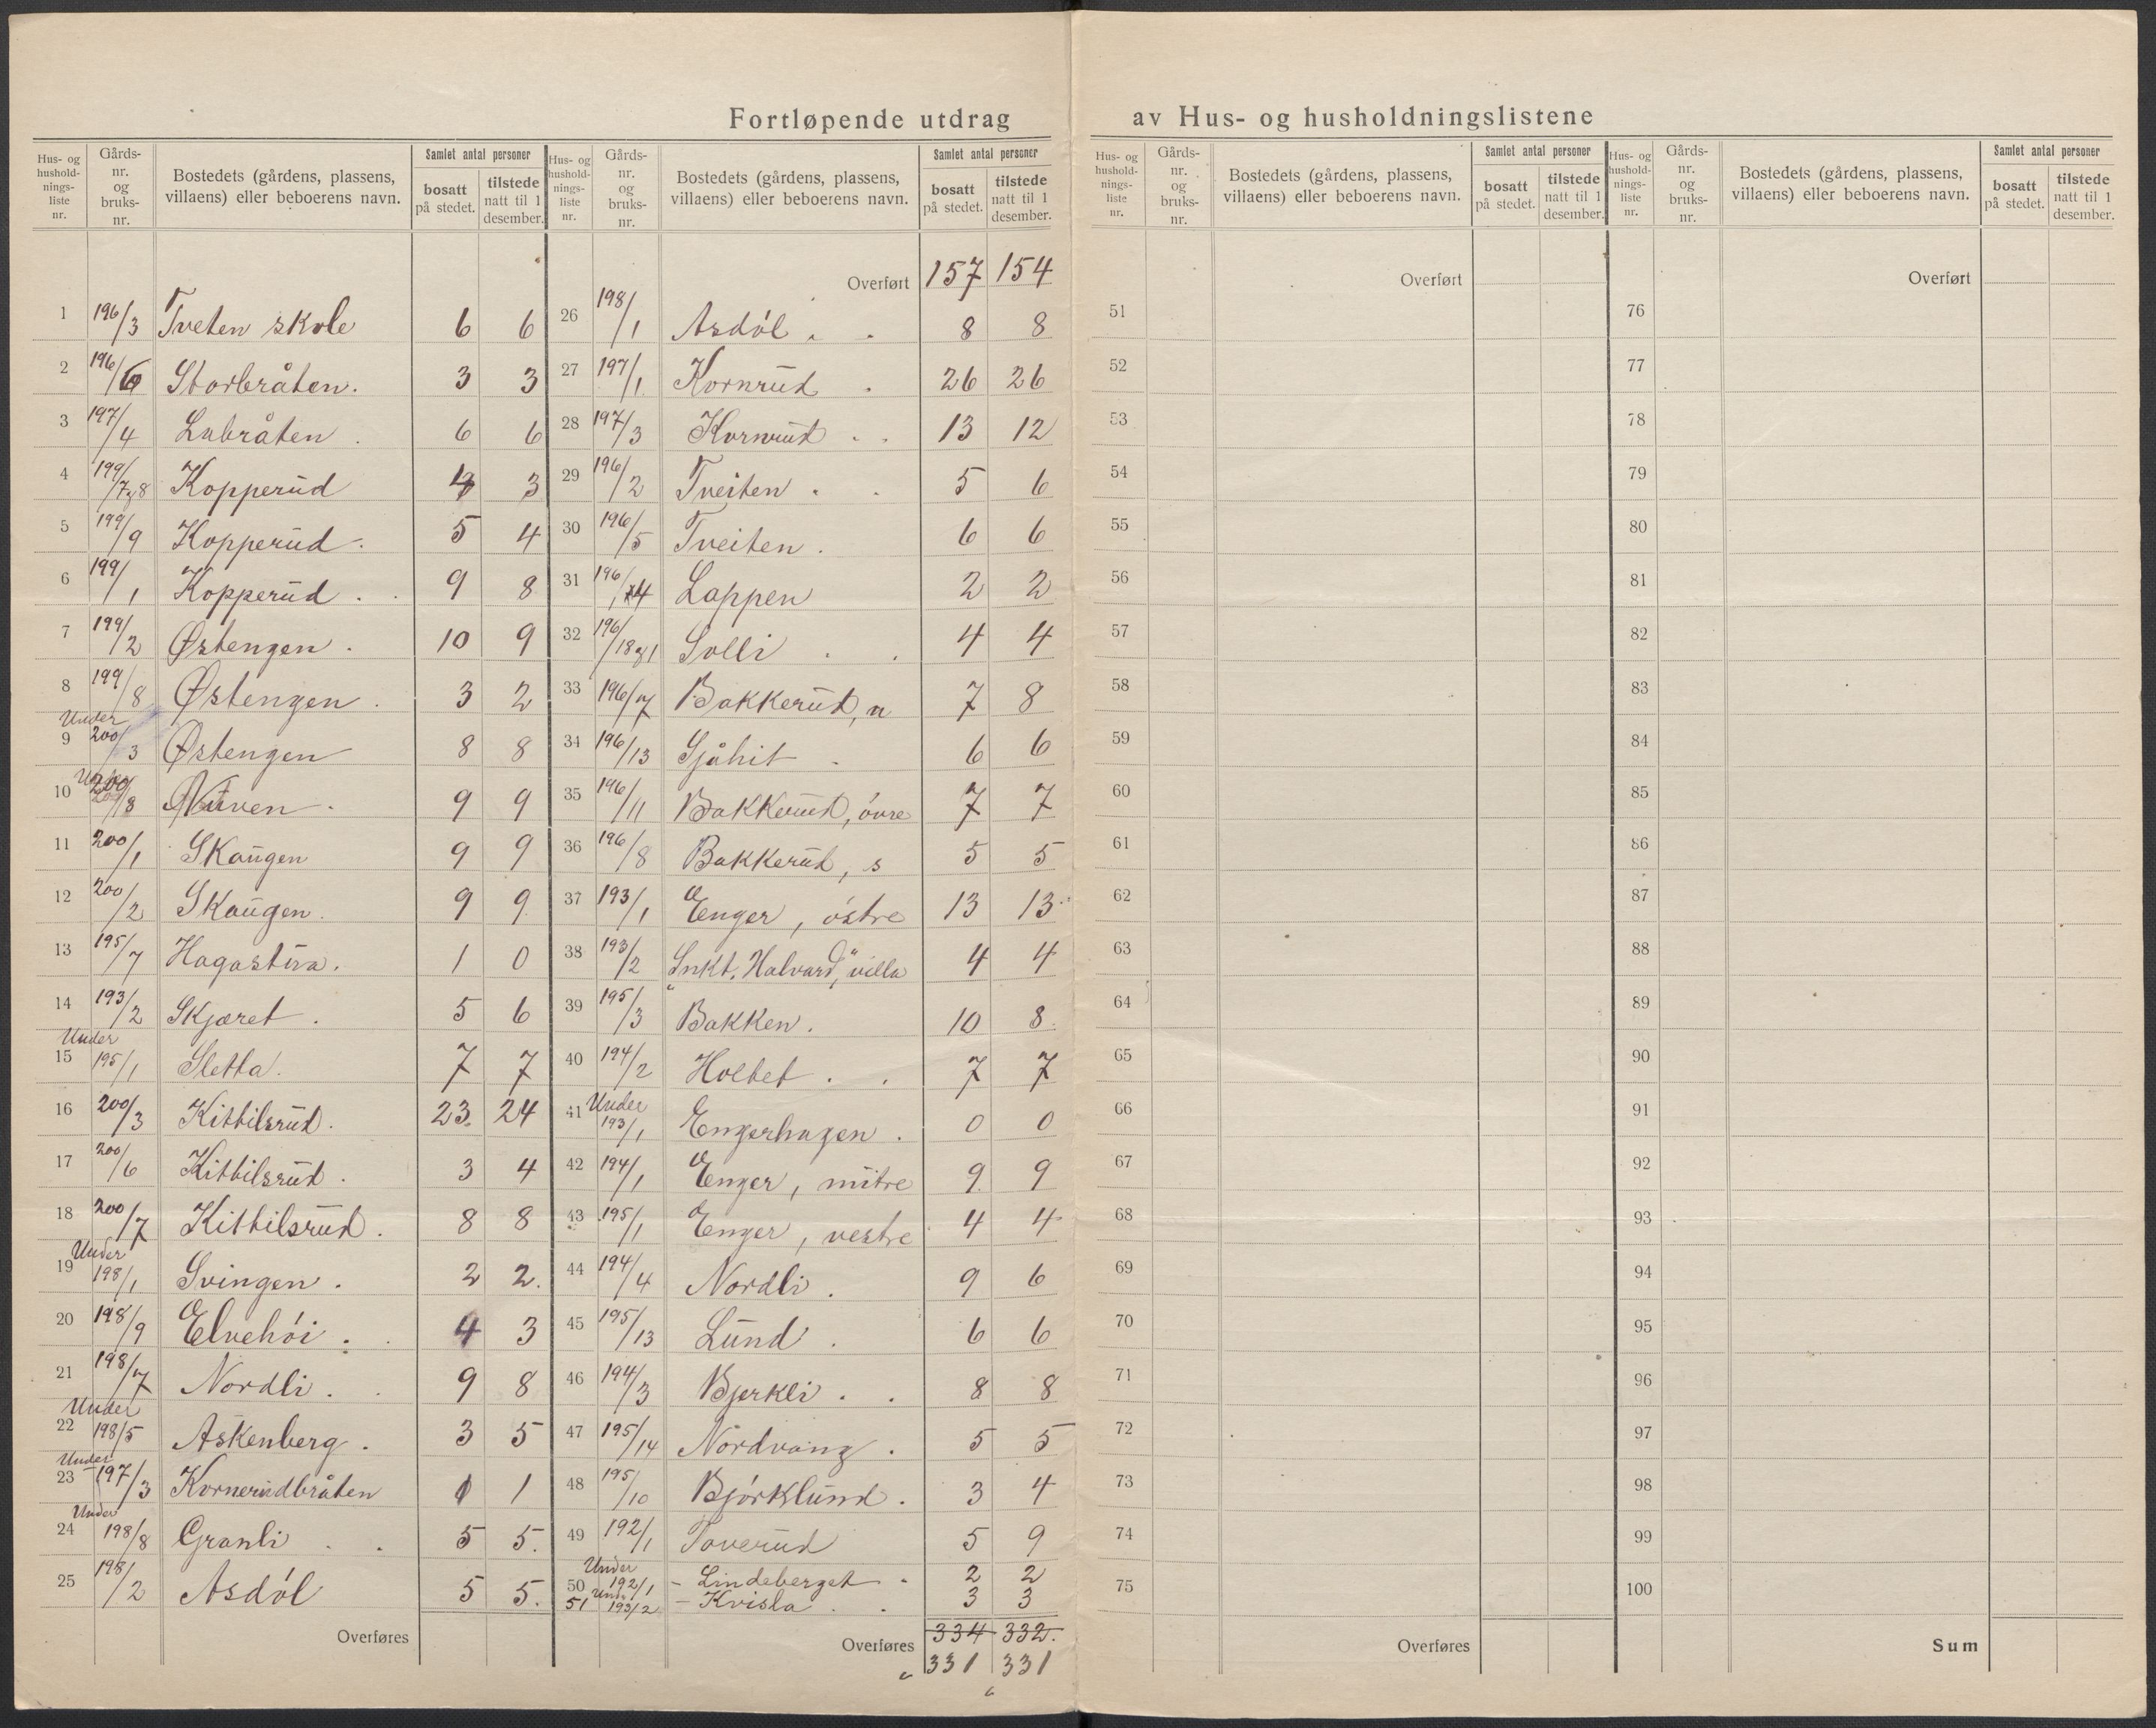 Fortløpende utdrag av Hus- og husholdningslistene
Hus- og husholdningsliste nr. | Gårds-nr. og bruks-nr. | Bostedets (gårdens, plassens, villaens) eller beboerens navn. | Samlet antal personer: bosatt på stedet. | tilstede natt til 1 desember.
1 196/3 Tveten skole 6 6
2 196/6 Storbråten. 3 3
3 197/4 Labråten . 6 6
4 199/7 og 8 Kopperud 4 3
5 199/9 Kopperud . 5 4
6 199/1 Kopperud . 9 8
7 199/2 Østengen . 10 9
8 199/8 Østengen . 3 2
9 Under 200/3 Østengen 8 8
10 Under 200/8 9 9
11 200/1 Skaugen 9 9
12 200/2 Skaugen. 9 9
13 195/7 Hagastua. 1 0
14 193/2 Skjæret . 5 6
15 Under 195/1 Sletta. 7 7
16 200/3 Kittilsrud. 23. 24
17 200/6 Kittilsrud . 3 4
18 200/7 Kittilsrud . 8 8
19 Under 198/1 Svingen . 2 2.
20 198/9 Elvehói . 4 3
21 198/7 Nordli . 9 8
22 Under 198/5 Askenberg . 3 5
23 Under 197/3 Kornerudbråten 1 1
24 Under 198/8 Granli . . 5 5.
25 198/2 Asdól 5 5.
Overføres
Hus- og husholdningsliste nr. | Gårds-nr. og bruks-nr. | Bostedets (gårdens, plassens, villaens) eller beboerens navn. | Samlet antal personer: bosatt på stedet. | tilstede natt til 1 desember.
Overført 157 154
26 198/1 Asdól . . 8 8
27 197/1 Kornrud . 26 26
28 197/3 Kornrud . . 13 12
29 196/2 Tveiten . . 5 6
30 196/5 Tveiten . 6 6
31 196/4 Lappen 2 2
32 196/18 og 1 Solli . . 4 4
33 196/7 Bakkerud, n 7 8
34 196/13 Sjåhit . 6 6
35 196/11 Bakkerud, óvre 7 7
36 196/8 Bakkerud, s 5 5
37 193/1 Enger, óstre 13 13
38 193/2 "Snkt. Halvard," villa 4 4
39 195/3 Bakken. 10 8.
40 194/2 Holtet . . 7 7
41 Under 193/1 Engerhagen . 0 0
42 194/1 Enger, mitre 9. 9
43 195/1 Enger, vestre 4 4
44 194/4 Nordli . 9 6
45 195/13 Lund . 6 6
46 194/3 Bjerkli . . 8 8
47 195/14 Nordvang . 5 5
48 195/10 Bjórklund . 3 4
49 192/1 Toverud 5 9
50 Under 192/1 - Lindeberget . 2 2
51 Under 193/2 - Kvisla . . 3 3
Overføres 334 332.
331 331
Hus- og husholdningsliste nr. | Gårds-nr. og bruks-nr. | Bostedets (gårdens, plassens, villaens) eller beboerens navn. | Samlet antal personer: bosatt på stedet. | tilstede natt til 1 desember.
Overført
51
52
53
54
55
56
57
58
59
60
61
62
63
64
65
66
67
68
69
70
71
72
73
74
75
Overføres
Hus- og husholdningsliste nr. | Gårds-nr. og bruks-nr. | Bostedets (gårdens, plassens, villaens) eller beboerens navn. | Samlet antal personer: bosatt på stedet. | tilstede natt til 1 desember.
Overført
76
77
78
79
80
81
82
83
84
85
86
87
88
89
90
91
92
93
94
95
96
97
98
99
100
Sum